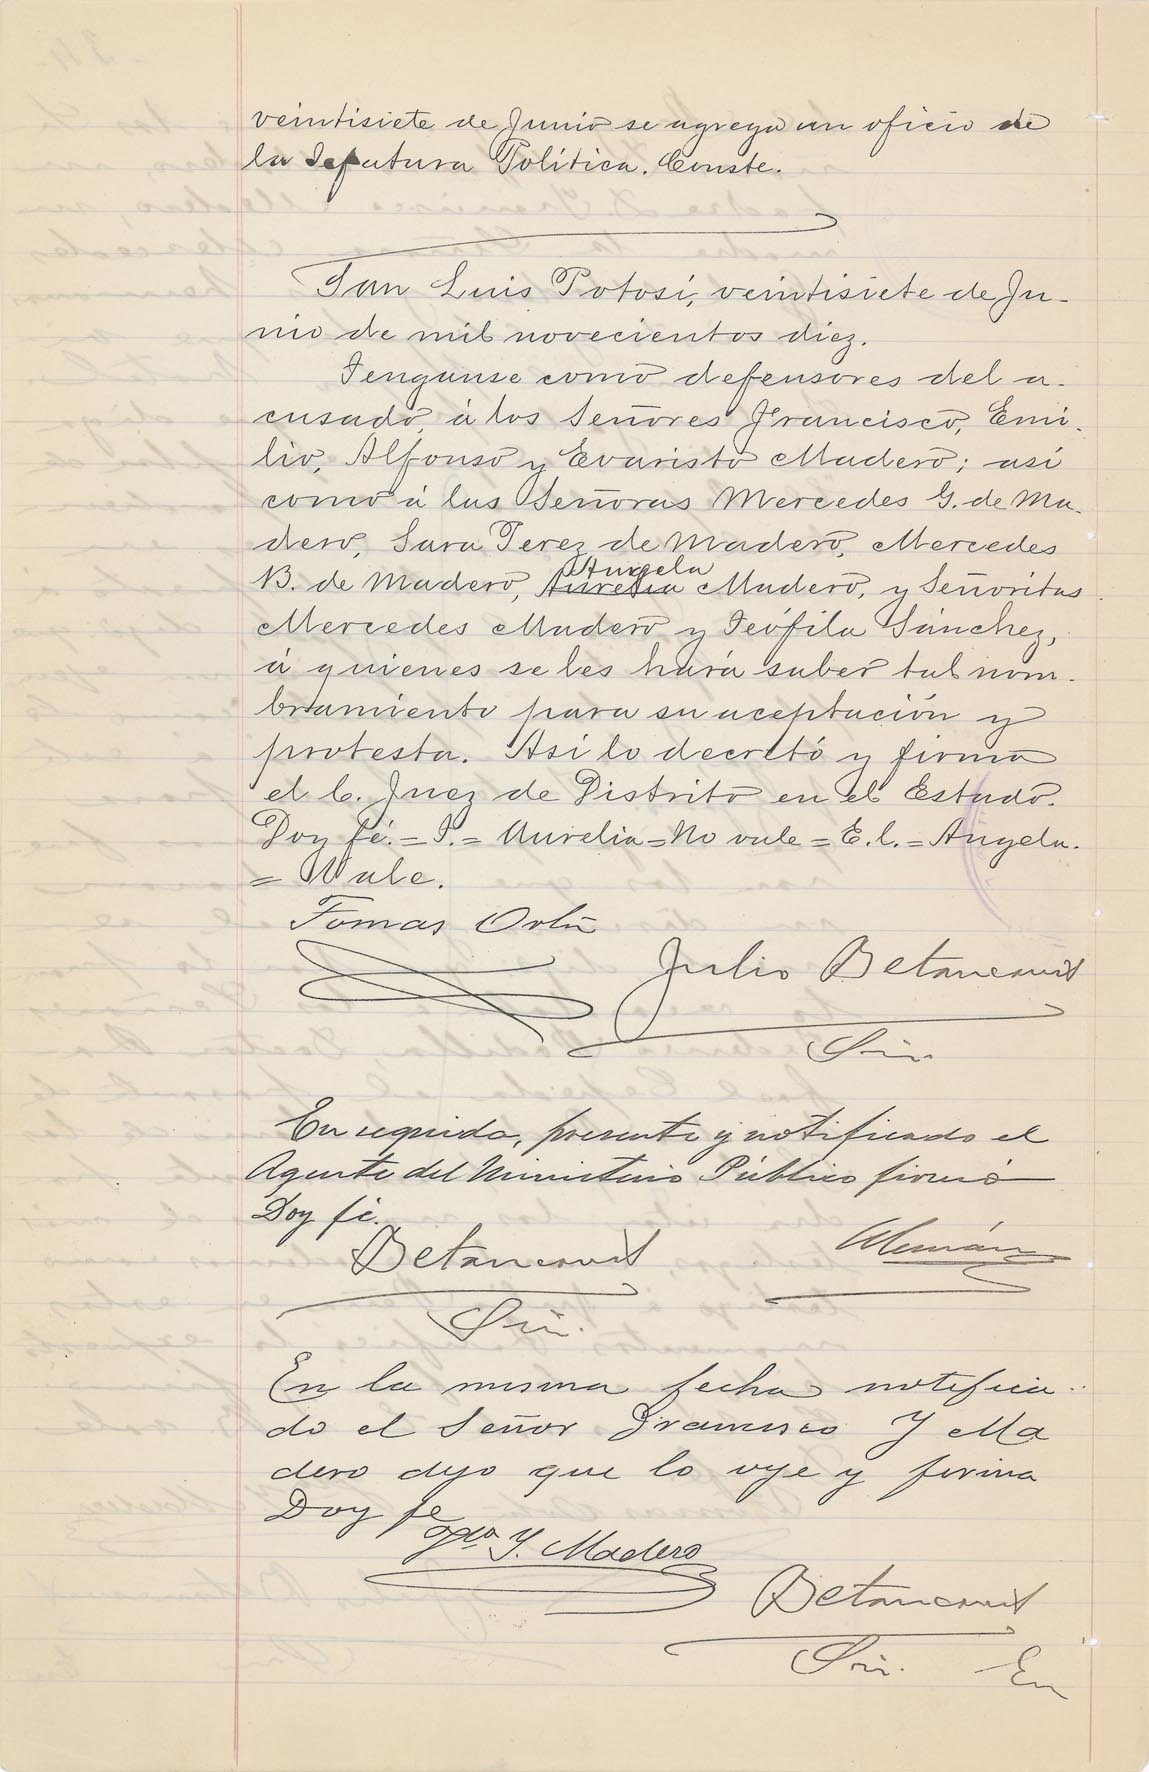 veintisiete de Junio se agrega un oficio de
la Jefatura Política. Conste.
San Luis Potosí, veintisiete de Ju-
nio de mil novecientos diez.
Tenganse como defensores del a-
cusado, á los Señores Francisco, Emi-
lio, Alfonso y Evaristo Madero; así
como á las Señoras Mercedes G. de Ma-
dero, Sara Perez de Madero, Mercedes
B. de Madero, Aurelia Angela Madero, y Señoritas
Mercedes Madero y Teófila Sánchez,
á quienes se les hará saber tal nom-
bramiento para su aceptación y
protesta. Así lo decretó y firmó
el C. Juez de Distrito en el Estado.
Doy fé. = T. = Aurelia = No vale = E.l. = Angela.
= Vale.
Tomas Ortiz
Julio Betancourt
Srio.
En seguida, presente y notificado el
Agente del Ministerio Público firmó
Doy fé.
Betancourt
Alemán
Srio.
En la misma fecha notifica-
do el Señor Francisco Y Ma
dero dijo que lo oye y firma
Doy fe
Fco. Y. Madero
Betancourt
Srio. En